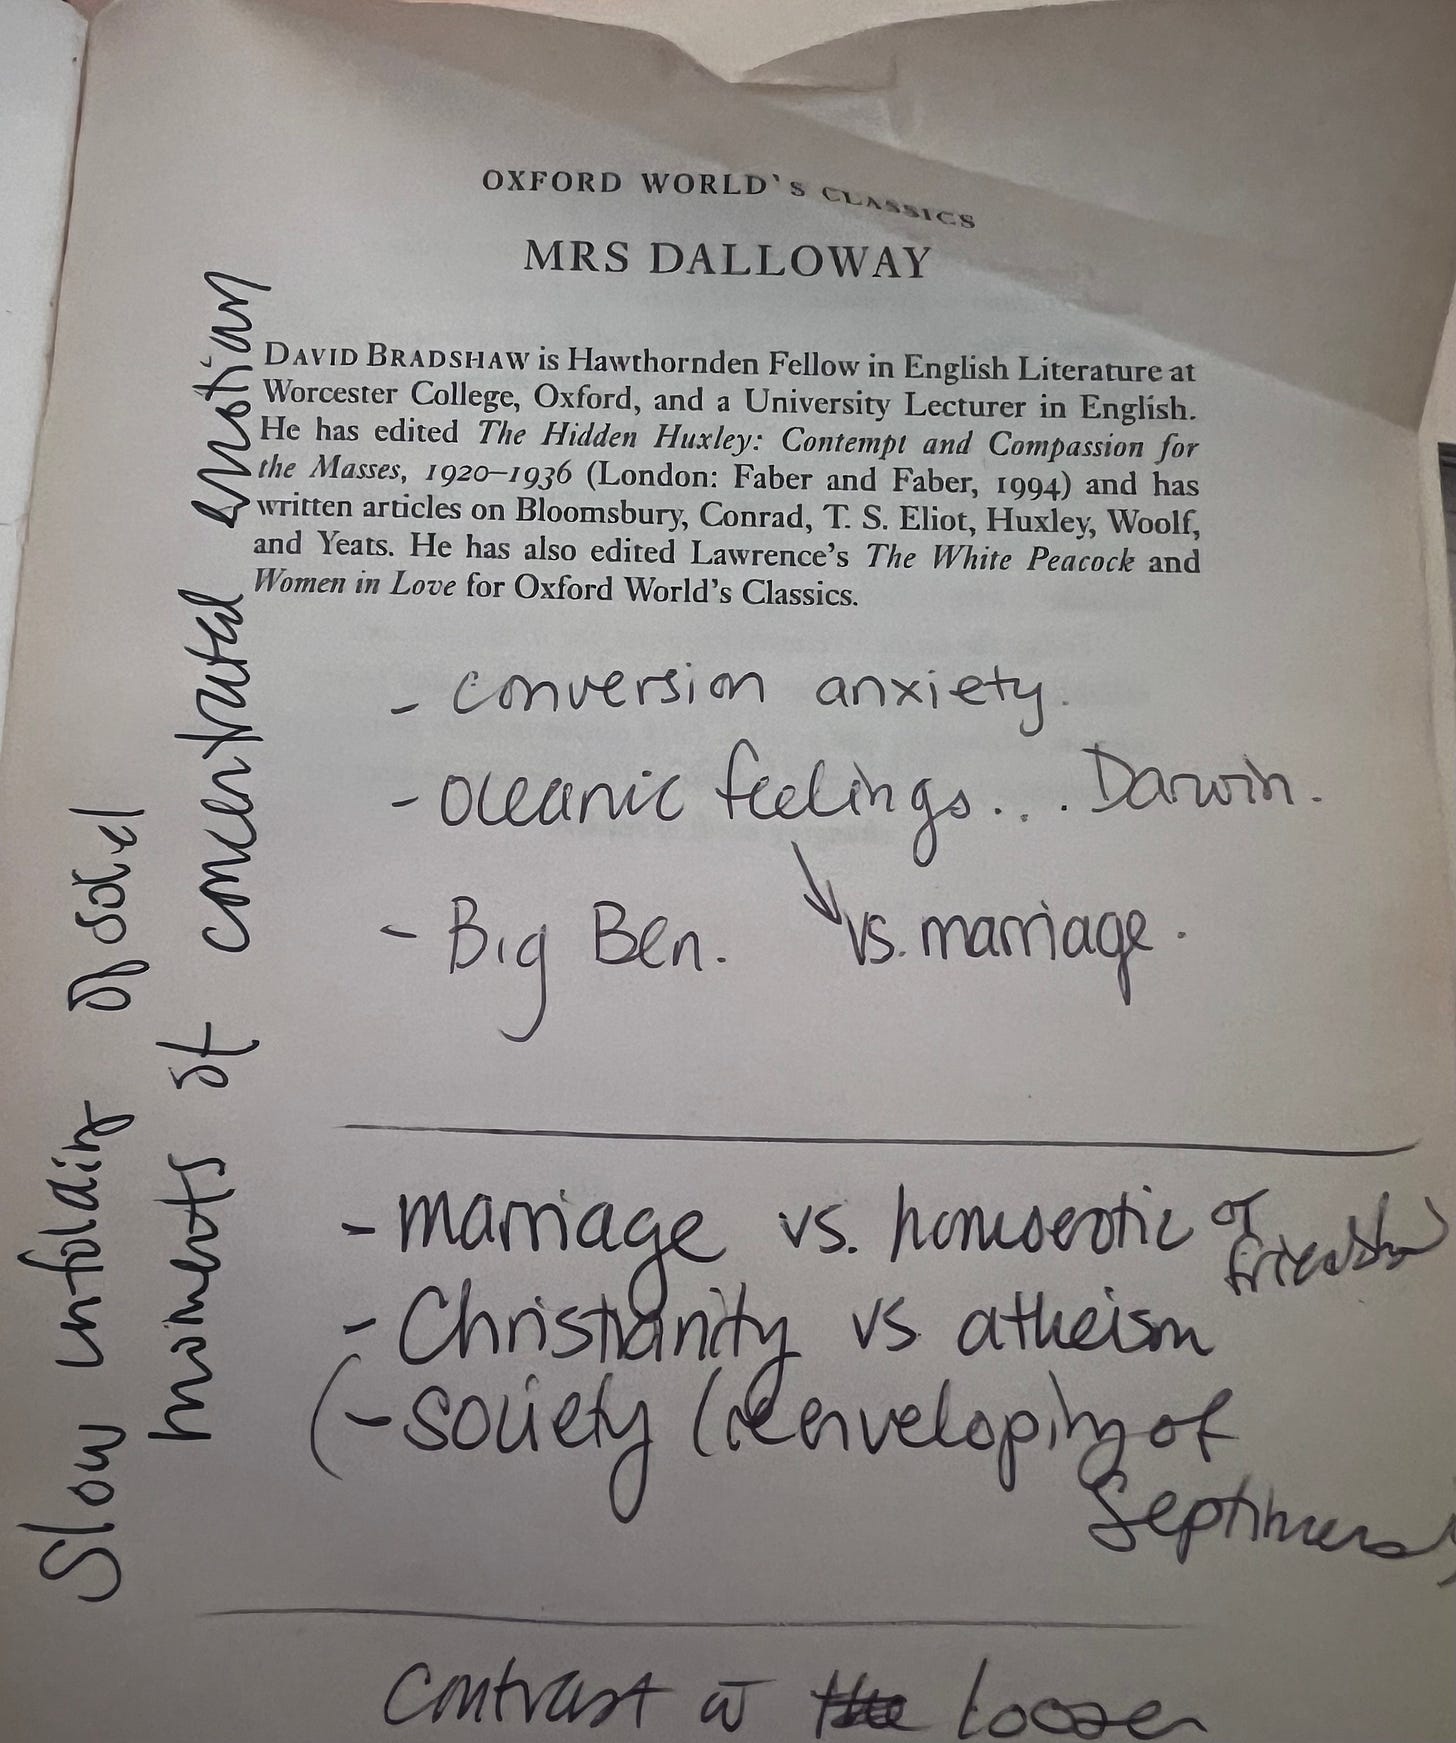 OXFORD WORLD'S CLASSICS
MRS DALLOWAY
DAVID BRADSHAW is Hawthornden Fellow in English Literature at
Worcester College, Oxford, and a University Lecturer in English.
He has edited The Hidden Huxley: Contempt and Compassion for
the Masses, 1920–1936 (London: Faber and Faber, 1994) and has
written articles on Bloomsbury, Conrad, T. S. Eliot, Huxley, Woolf,
and Yeats. He has also edited Lawrence's The White Peacock and
Women in Love for Oxford World's Classics.
- conversion anxiety.
- oceanic feelings... Darwin.
- Big Ben. vs. marriage.
- marriage vs. homoerotic of
friendship
- Christianity vs atheism
(- society (enveloping of
Septimus)
contrast w looser
Slow unfolding of
moments of concentrated emotion